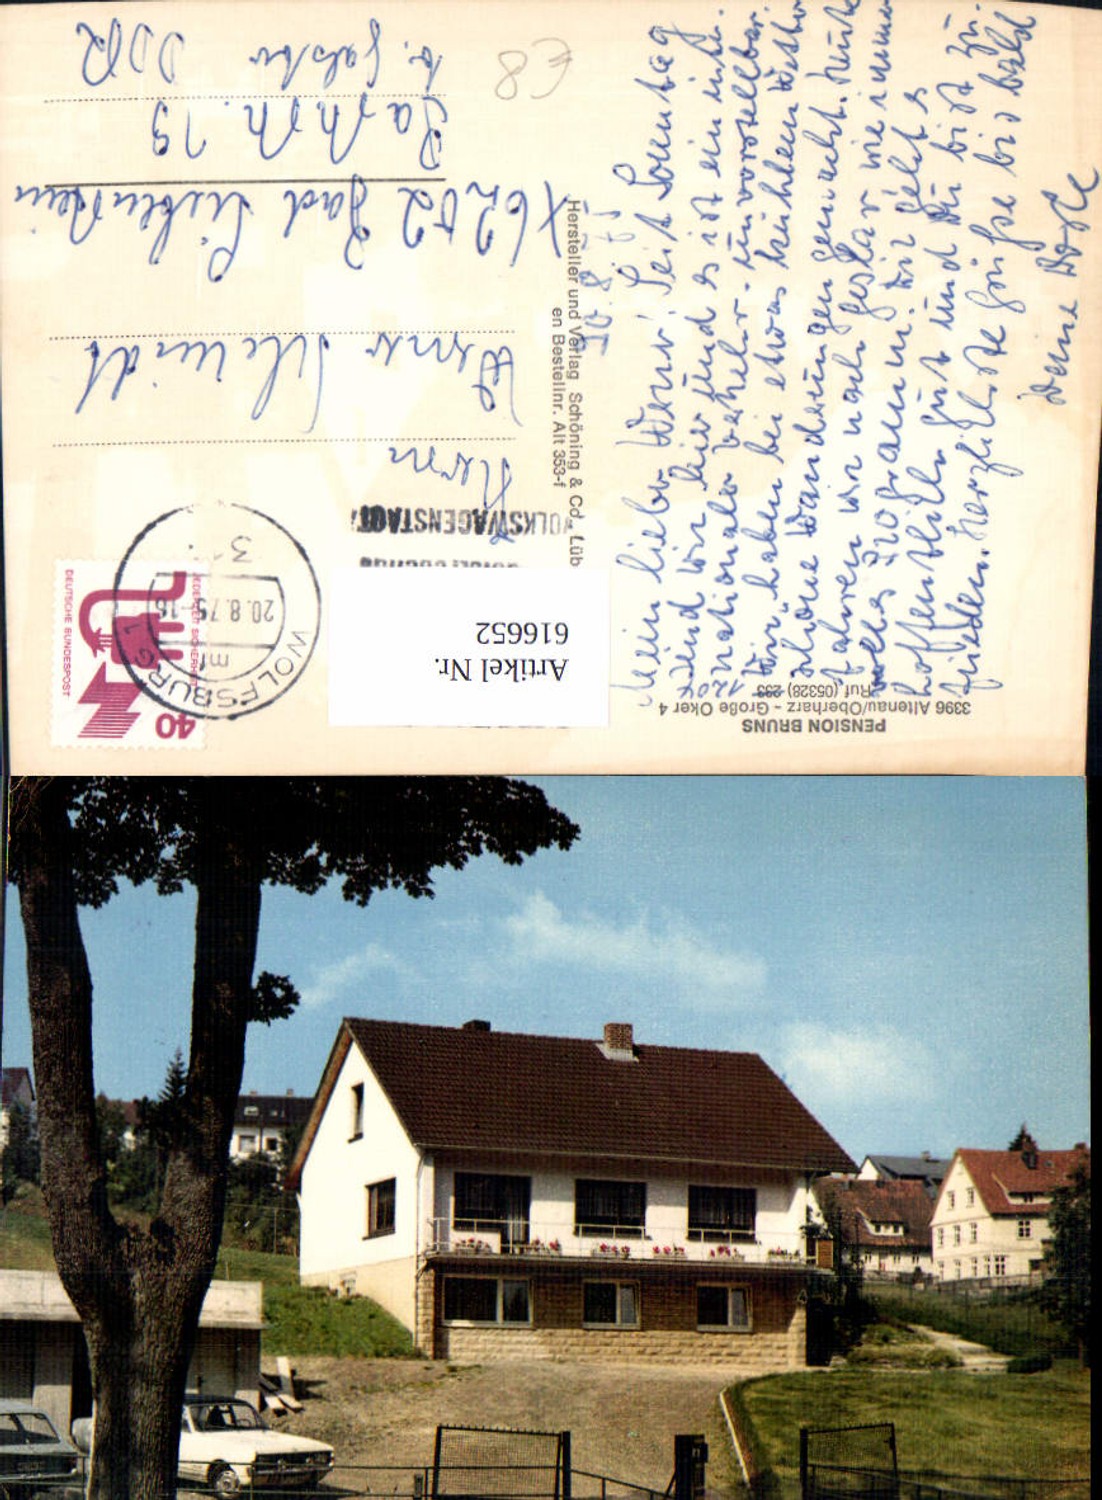 PENSION BRUNS
3396 Altenau/Oberharz - Große Oker 4
Ruf (05328) 233
1204
20.8.75
Mein lieber Werner! Seit Sonntag
sind wir hier und es ist ein inter-
nationaler Verkehr - unvorstellbar.
Wir haben bei etwas kühlem Wetter
schöne Wanderungen gemacht. Heute
fahren wir nach Goslar wie immer
volles Programm. Dir geht es
hoffentlich gut und Du bist zu-
frieden. Herzlichste Grüße bis bald
Deine
Hersteller und Verlag Schöning & Co., Lüb
en Bestellnr. Alt 353-f
Artikel Nr.
616652
WOLFSBURG 1
20.8.75-16
mf
3
VOLKSWAGENSTADT
40
JEDERZEIT SICHERHEIT
DEUTSCHE BUNDESPOST
Herrn
Werner Schmidt
X6202 Bad Liebenstein
19
DDR
€8